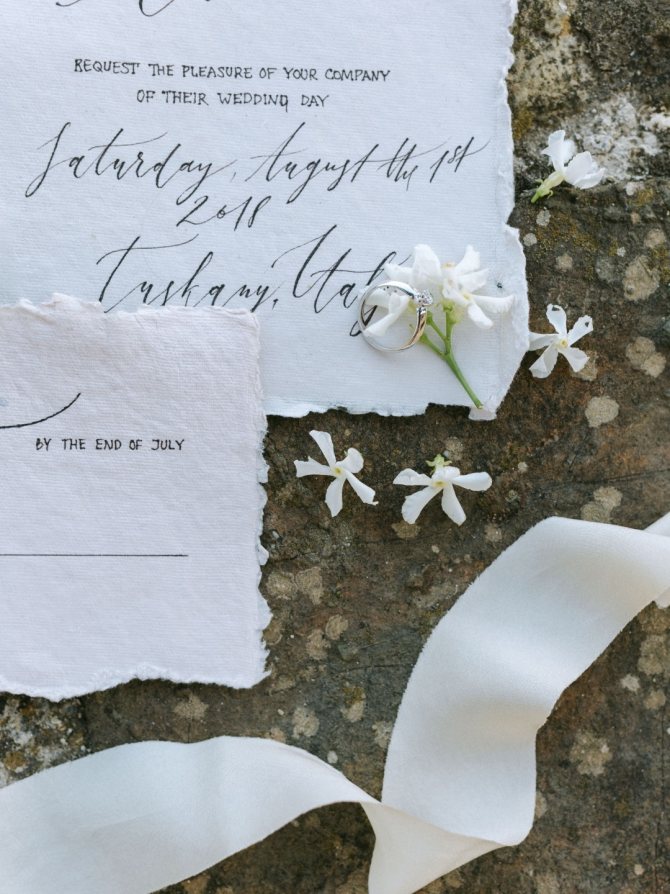 REQUEST THE PLEASURE OF YOUR COMPANY
OF THEIR WEDDING DAY
Saturday, August the 1st
2018
Tuskany, Italy
BY THE END OF JULY